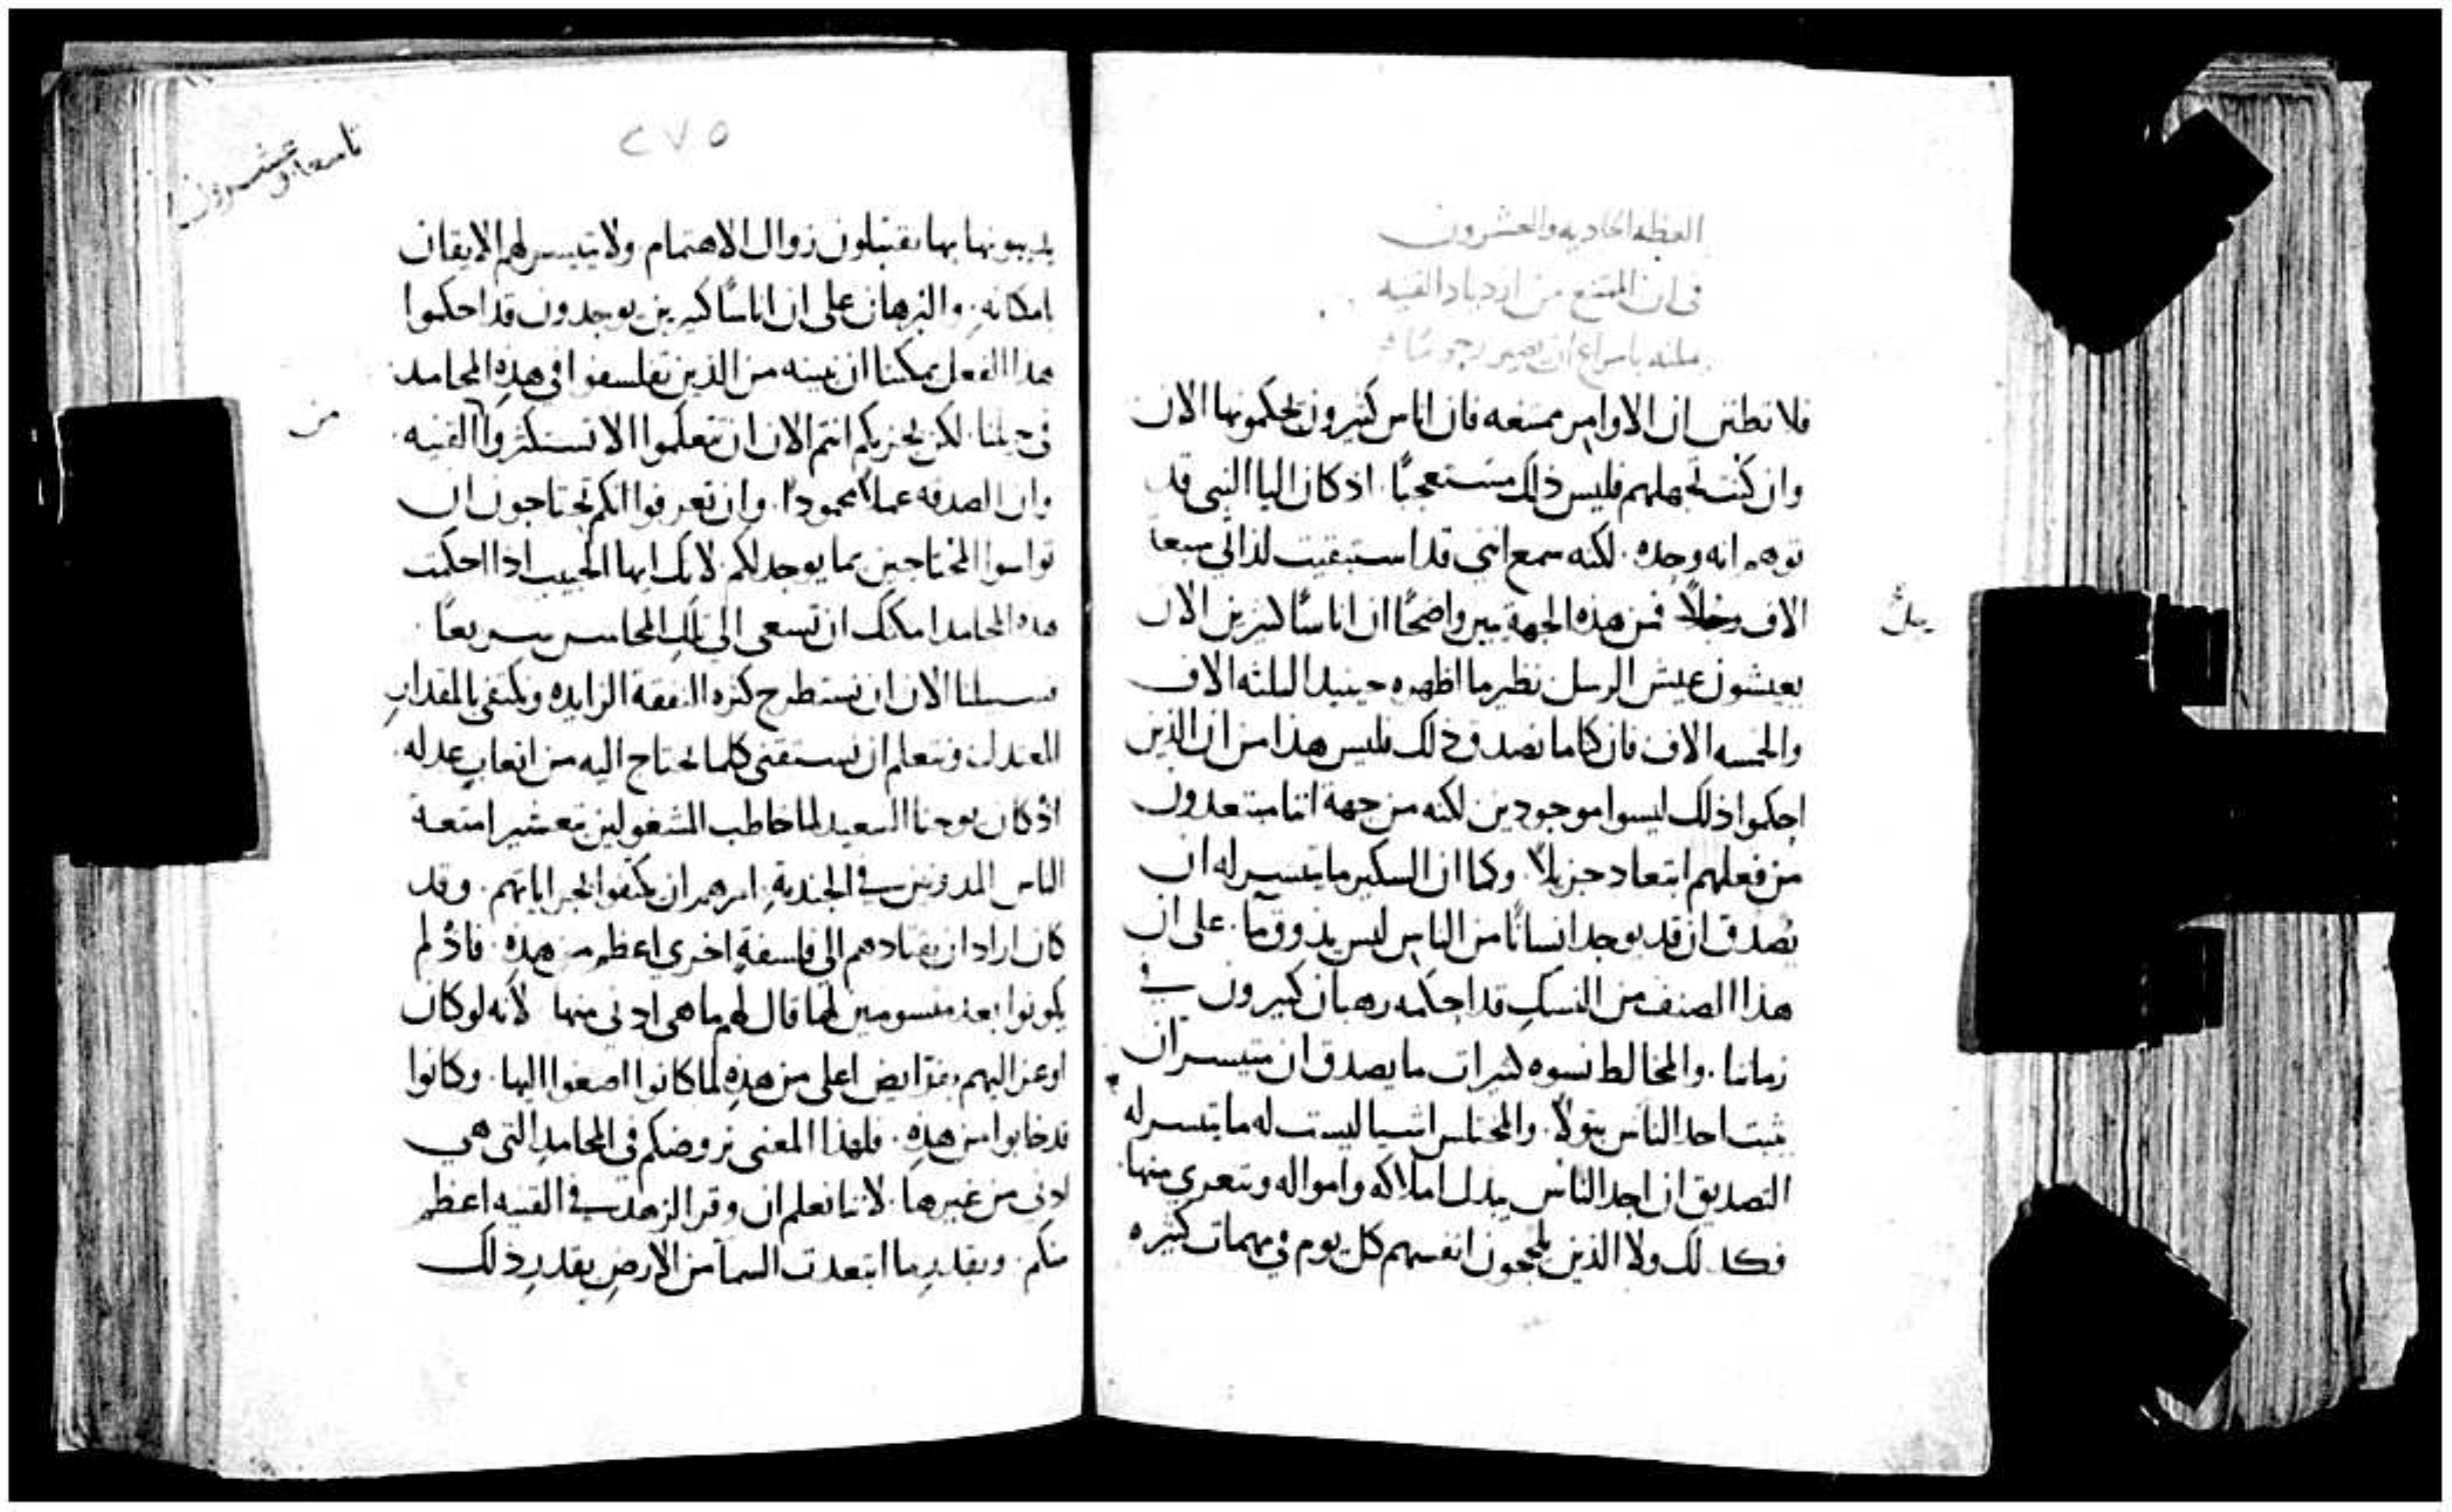 العظه الحاديه والعشرون
في ان الممتنع من ازدياد القنيه
باسراع ان يصير
فلا تظنن ان الاوامر ممتنعه فان اناس كثيرون يحكمونها الان
وان كنت تجهلهم فليس ذلك مستعجبًا. اذ كان اليا النبي قد
توهم انه وحده. لكنه سمع انني قد استبقيت لذاتي سبعة
الاف رجلاً فمن هذه الجهة يبين واضحًا ان اناسًا كثيرين الان
يعيشون عيش الرسل نظير ما اظهره حينيد الثلثه الاف
والخمسه الاف فان كنا ما نصدق ذلك فليس هذا من ان الذين
احكموا ذلك ليسوا موجودين لكنه من جهة اننا مبتعدون
من فعلهم ابتعاد جزيلاً. وكما ان السكير ما يتيسر له ان
يصدق ان قد يوجد انسانًا من الناس ليس يذوق مآ. على ان
هذا الصنف من النسك قد احكمه رهبان كثيرون في
زماننا. والمخالط نسوه كثيرات ما يصدق ان متيسر ان
يثبت احد الناس بتولاً. والمختلس اشيا ليست له ما يتيسر له
التصديق ان احد الناس يبدل املاكه وامواله ويتعري منها
فكذلك ولا الذين يلججون انفسهم كل يوم في مهمات كثيره
يل
٢٧٥
تاسعا وعشرون
يديبونها بها يقتبلون زوال الاهتمام. ولا يتيسر لهم الايقان
بامكانه. والبرهان على ان اناسًا كثيرين يوجدون قد احكموا
هذا الفعل يمكننا ان نبينه من الذين تفلسفوا في هذه المحامد
في جيلنا. لكن يجزيكم انتم الان ان تتعلموا الا تستكثروا القنيه
من
وان الصدقه عملاً محمودًا. وان تعرفوا انكم تحتاجون ان
تواسوا المحتاجين بما يوجد لكم. لانك ايها الحبيب اذا احكمت
هذه المحامد امكنك ان تسعى الى تلك المحاسن سريعًا.
فسبيلنا الان ان نستطرح كثره النفقة الزايده ونكتفي بالمقدار
المعتدل ونتعلم ان نستقني كلما نحتاج اليه من اتعاب عدله.
اذ كان يوحنا السعيد لما خاطب المشغولين بتعشير امتعة
الناس المدونين في الجندية. امرهم ان يكتفوا بجراياتهم. وقد
كان اراد ان يقتادهم الى فلسفة اخرى اعظم من هذه. فاذ لم
يكونوا بعد متسومين لها قال لهم ما هي ادنى منها لانه لو كان
اوعز اليهم بفرايض اعلى من هذه لما كانوا اصغوا اليها. وكانوا
قد خابوا من هذه. فلهذا المعنى نروضكم في المحامد التي هي
ادنى من غيرها. لاننا نعلم ان وقر الزهد في القنيه اعظم
منكم. وبقدر ما ابتعدت السما من الارض بقدر ذلك